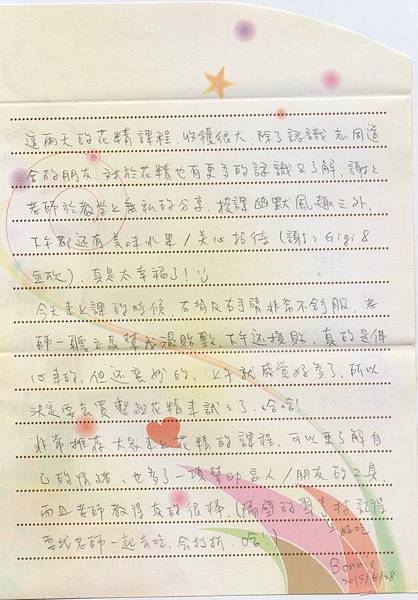 這兩天的花精課程,收穫很大,除了認識志同道
合的朋友,对於花精也有更多的認識及了解,謝謝
老師於教學上無私的分享,授課幽默風趣之外,
下午都还有美味水果/点心招待(謝謝Gigi &
宜欣),真是太幸福了!
今天来上課的時候,右肩及右手臂非常不舒服,老
師一聽立馬幫我滴點數,下午还換點,真的是佛
心来的,但还蛮妙的、上午就感覺好多了,所以
決定要去買整組花精来試試了,哈哈!
非常推荐大家来上花精的課程,可以更了解自
己的情緒、也多了一項幫助家人/朋友的工具
而且老師教得真的很棒,(隔壁的 記得
要找老師一起去吃,会打折,哈.)
好吃
Bonnie
2015/6/28